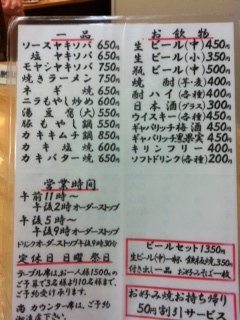 一品
ソースヤキソバ 650円
塩ヤキソバ 650円
モヤシヤキソバ 750円
焼きラーメン 750円
ネギ焼 600円
ニラもやし炒め 600円
湯豆腐(大) 550円
豚もやし鍋 550円
カキキムチ鍋 850円
カキ塩焼 600円
カキバター焼 650円
お飲物
生ビール(中) 450円
生ビール(小) 350円
瓶ビール(中) 500円
焼酎(芋・麦) 400円
酎ハイ(各種) 400円
日本酒(グラス) 300円
ウイスキー(各種) 450円
ギャバリッチ梅酒 450円
ギャバリッチ黒果実 450円
キリンフリー 400円
ソフトドリンク(各種) 200円
営業時間
午前11時〜
午後2時オーダーストップ
午後5時〜
午後9時オーダーストップ
ドリンクオーダーストップ午後9時30分
定休日 日曜 祭日
テーブル席は、お一人様1500円の
ご予算で3名様より10名様まで、
ご予約受け承ります。
尚 カウンター席は、ご予約
ビールセット1350円
生ビール(中)一杯
付き出し一品 お好みそば一枚
お好み焼お持ち帰り
50円割引サービス